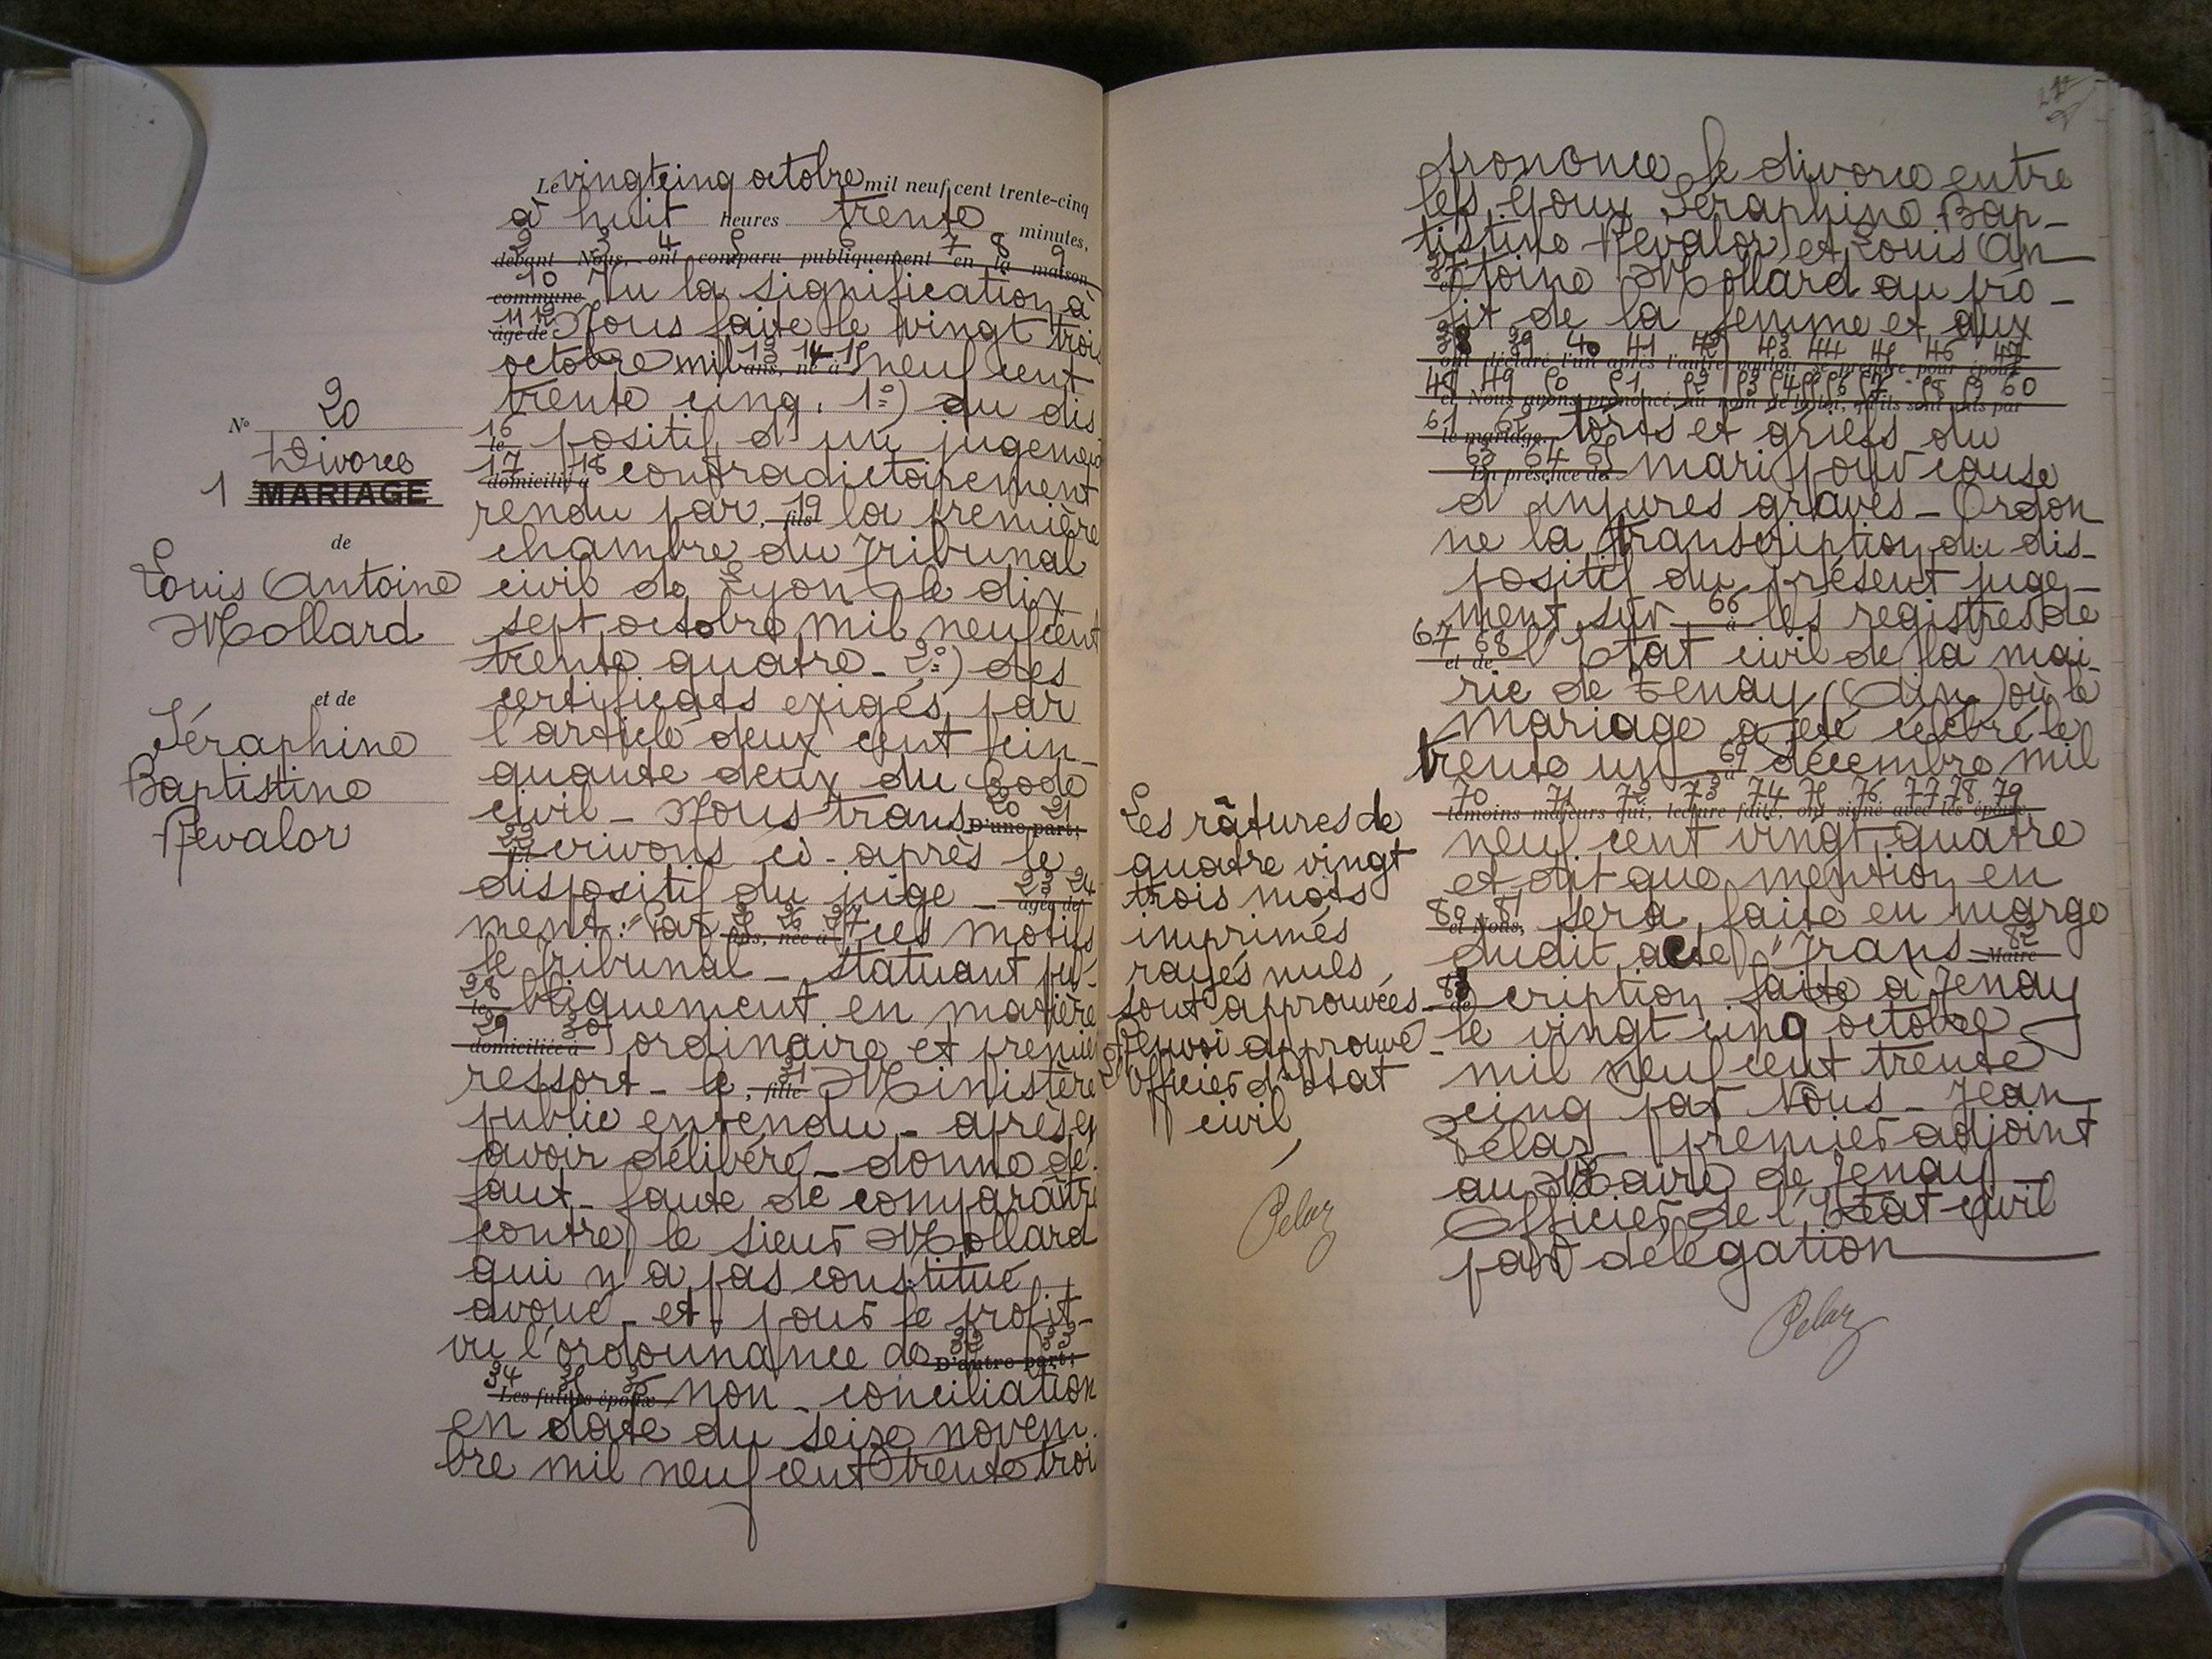 N° 20
Divorce
1 MARIAGE
de
Louis Antoine
Mollard
et de
Séraphine
Baptistine
Revalor
Le vingt cinq octobre mil neuf cent trente-cinq
à huit heures trente minutes,
2 3 4 5 6 7 8 9
devant Nous, ont comparu publiquement en la maison
10
commune Vu la signification à
11 12
âgé de Nous faite le vingt troi
13 14 15
octobre mil ans, né à neuf cent
trente cinq. 1°) du dis
16
le positif d'un jugement
17 18
domicilié à contradictoirement
19
rendu par, fils la première
chambre du Tribunal
civil de Lyon le dix
sept octobre mil neuf cent
trente quatre _ 2°) des
certificats exigés par
l'article deux cent cin_
quante deux du Code
20 21
civil _ Nous trans D'une part;
22
Et crivons ci-après le
23 24
dispositif du juge _ âgée de
25 26 27
ment: "Par ans, née à ces motifs
le Tribunal _ statuant pu-
28
le bliquement en matière
29 30
domiciliée à ordinaire et premier
31
ressort _ le, fille Ministère
public entendu _ après en
avoir délibéré _ donne dé
faut _ faute de comparaître
contre le sieur Mollard
qui n'a pas constitué
avoué _ et pour le profit _
32 33
vu l'ordonnance de D'autre part;
34 35 36
Les futurs époux non _ conciliation
en date du seize novem
bre mil neuf cent trente troi
prononce le divorce entre
les époux Séraphine Bap_
tistine Revalor et Louis An_
37
et toine Mollard au pro_
fit de la femme et aux
38 39 40 41 42 43 44 45 46 47
ont déclaré l'un après l'autre vouloir se prendre pour époux
48 49 50 51 52 53 54 55 56 57 58 59 60
et Nous avons prononcé au nom de la loi, qu'ils sont unis par
61 62
le mariage. torts et griefs du
63 64 65
En présence de mari pour cause
d'injures graves _ Ordon
ne la transcription du dis_
positif du présent juge_
66
ment sur à les registres de
67 68
et de l'Etat civil de la mai_
rie de Tenay (Ain) où le
mariage a été célébré le
69
trente un à décembre mil
70 71 72 73 74 75 76 77 78 79
témoins majeurs qui, lecture faite, ont signé avec les époux
neuf cent vingt quatre
et dit que mention en
80 81
et Nous, sera faite en marge
82
dudit acte" Trans _ Maire
83
de cription faite à Tenay
le vingt cinq octobre
mil neuf cent trente
cinq par Nous _ Jean
Pélaz _ premier adjoint
au Maire de Tenay
Officier de l'Etat civil
par délégation
Pelaz
Les râtures de
quatre vingt
trois mots
imprimés
rayés nuls
sont approuvées _
Renvoi approuvé _
Officier d'Etat
civil
Pelaz